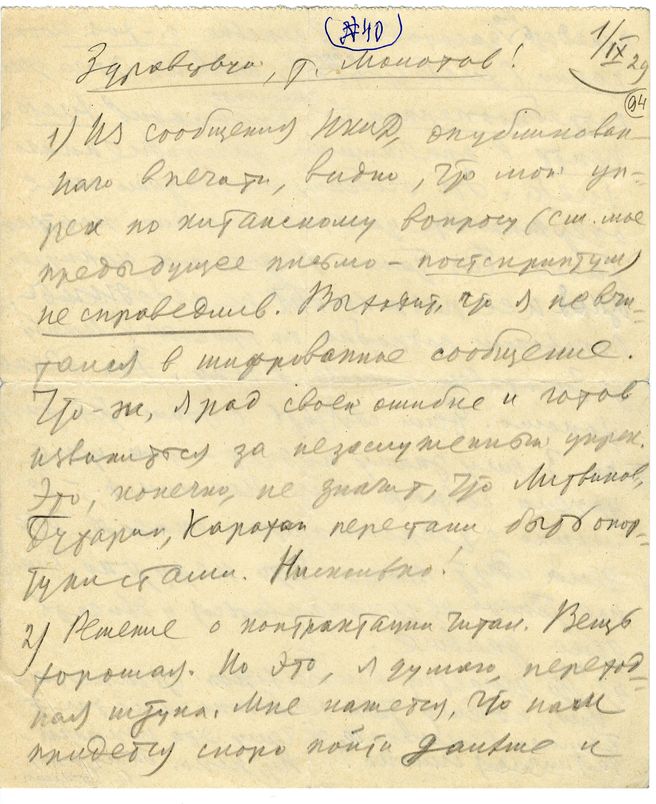 (№40)
1/IX 29
94
Здравствуй, т. Молотов!
1) Из сообщения НКИД, опубликован-
ного в печати, видно, что мой уп-
рек по китайскому вопросу (см. мое
предыдущее письмо – постскриптум)
не справедлив. Выходит, что я не вчи-
тался в шифрованное сообщение.
Что-ж, я рад своей ошибке и готов
извиниться за незаслуженный упрек.
Это, конечно, не значит, что Литвинов,
Бухарин, Карахан перестали быть опор-
тунистами. Нисколько!
2) Решение о контрактации читал. Вещь
хорошая. Но это, я думаю, переход-
ная штука. Мне кажется, что нам
придется скоро пойти дальше и